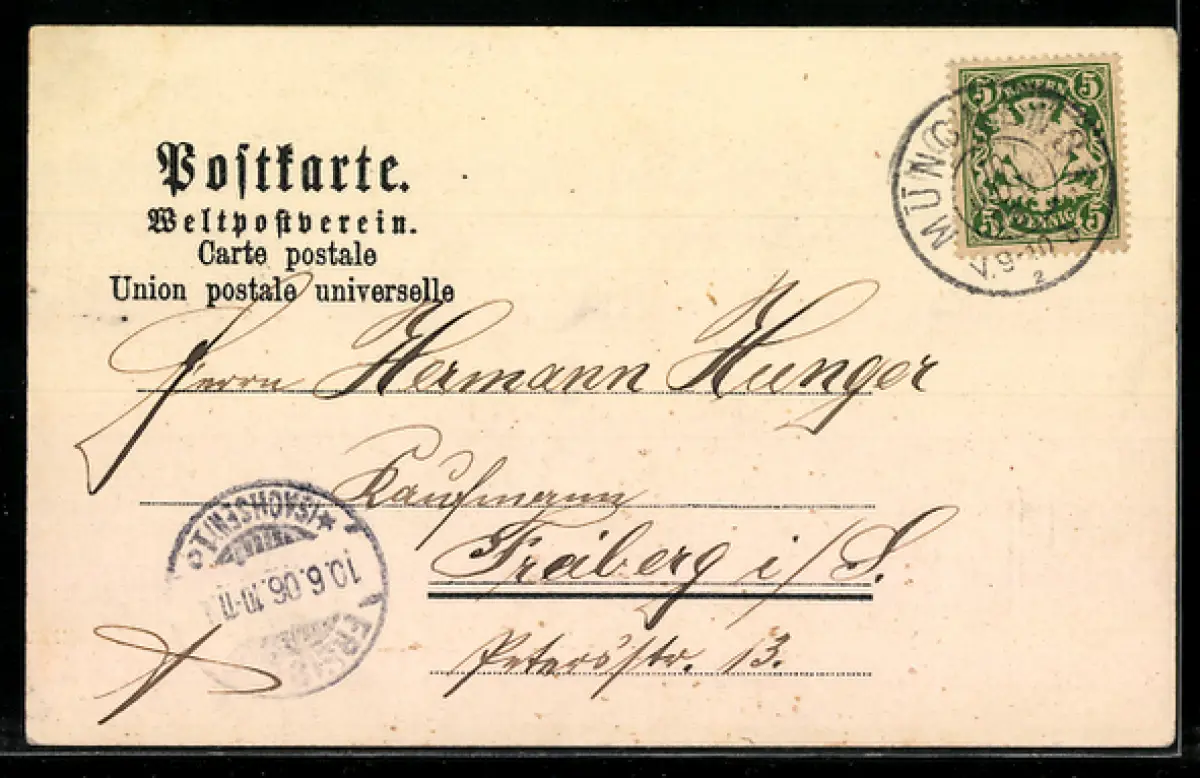 Postkarte.
Weltpostverein.
Carte postale
Union postale universelle
5 BAYERN 5
5 PFENNIG 5
MÜNCHEN
V.9-10
2
Herrn Hermann Hunger
Kaufmann
Freiberg i/S.
Petersstr. 13.
10.6.06.10-11